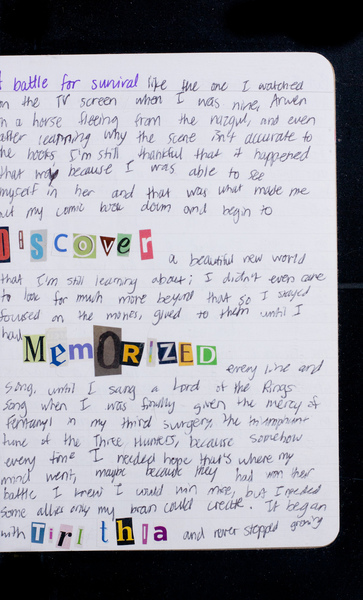 A battle for survival like the one I watched
on the TV screen when I was nine, Arwen
on a horse fleeing from the nazgul, and even
after learning why the scene isn't accurate to
the books I'm still thankful that it happened
that way because I was able to see
myself in her and that was what made me
put my comic book down and begin to
DIScover
a beautiful new world
that I'm still learning about; I didn't even care
to look for much more beyond that so I stayed
focused on the movies, glued to them until I
had
MemORIZED
every line and
song, until I sang a Lord of the Rings
song when I was finally given the mercy of
Fentanyl in my third surgery, the triumphant
tune of the Three Hunters, because somehow
every time I needed hope that's where my
mind went, maybe because they had won their
battle I knew I would win mine, but I needed
some allies only my brain could create. It began
with Tiri thIa and never stopped growing